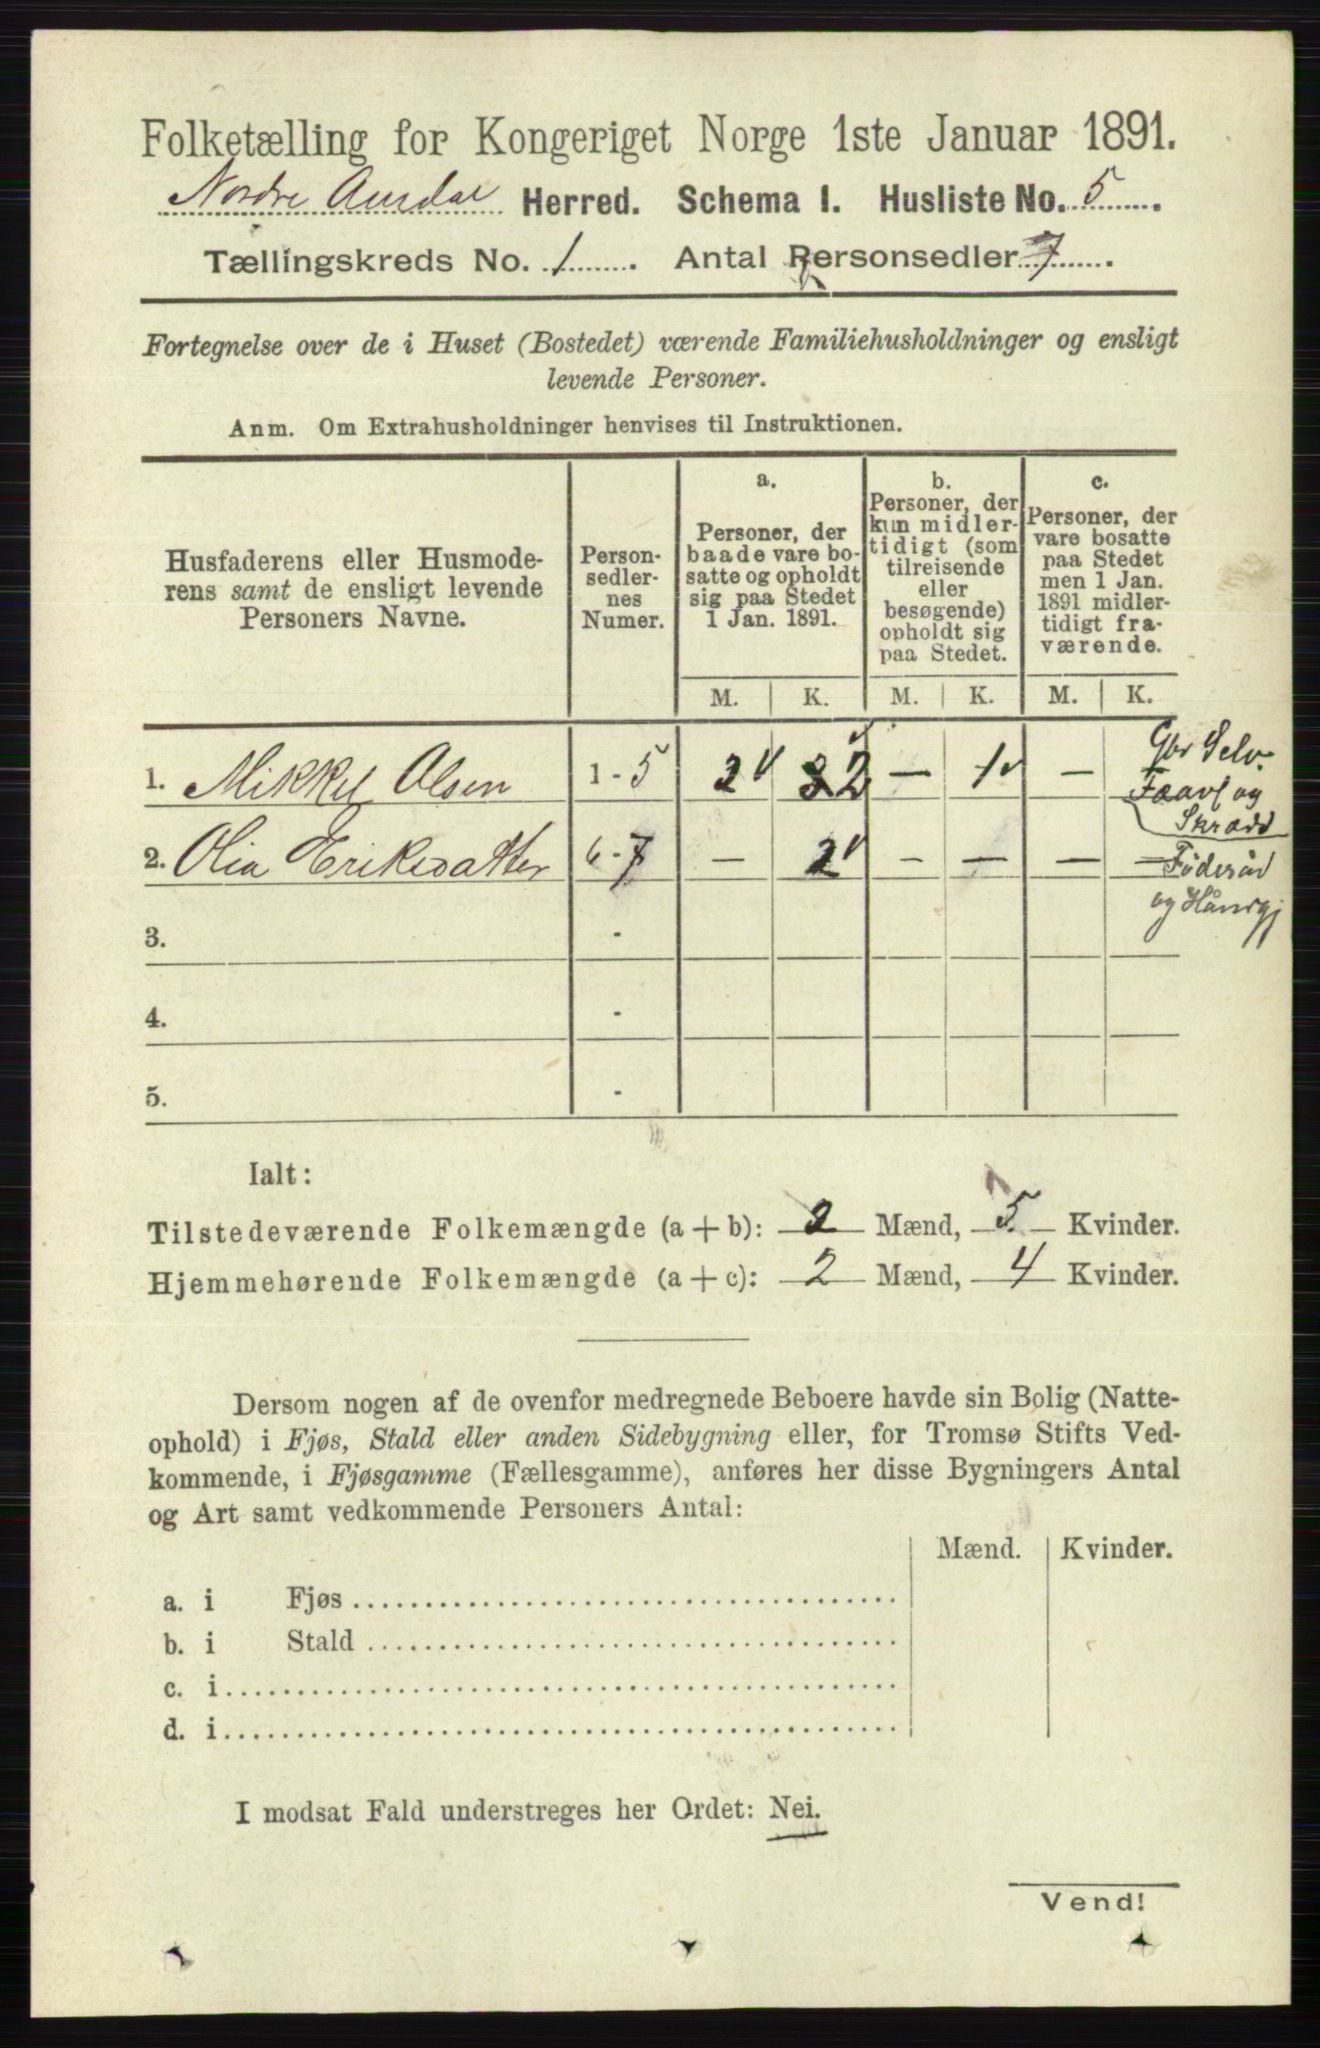 Folketælling for Kongeriget Norge 1ste Januar 1891.
Nordre Aurdal Herred. Schema 1. Husliste No. 5.
Tællingskreds No. 1. Antal Personsedler 7.
Fortegnelse over de i Huset (Bostedet) værende Familiehusholdninger og ensligt
levende Personer.
Anm. Om Extrahusholdninger henvises til Instruktionen.
Husfaderens eller Husmode-
rens samt de ensligt levende
Personers Navne.
Person-
sedler-
nes
Numer.
a.
Personer, der
baade vare bo-
satte og opholdt
sig paa Stedet
1 Jan. 1891.
b.
Personer, der
kun midler-
tidigt (som
tilreisende
eller
besøgende)
opholdt sig
paa Stedet.
c.
Personer, der
vare bosatte
paa Stedet
men 1 Jan.
1891 midler-
tidigt fra-
værende.
M. K. M. K. M. K.
1. Mikkel Olsen 1 - 5 2 2 — 1 —
Gbr Selv.
og
2. Olia Eriksdatter 6 - 7 — 2 — — — —
Föderåd
og
3. -
4. -
5. -
Ialt:
Tilstedeværende Folkemængde (a + b): 2 Mænd, 5 Kvinder.
Hjemmehørende Folkemængde (a + c): 2 Mænd, 4 Kvinder.
Dersom nogen af de ovenfor medregnede Beboere havde sin Bolig (Natte-
ophold) i Fjøs, Stald eller anden Sidebygning eller, for Tromsø Stifts Ved-
kommende, i Fjøsgamme (Fællesgamme), anføres her disse Bygningers Antal
og Art samt vedkommende Personers Antal:
Mænd. Kvinder.
a. i Fjøs
b. i Stald
c. i
d. i
I modsat Fald understreges her Ordet: Nei.
Vend!